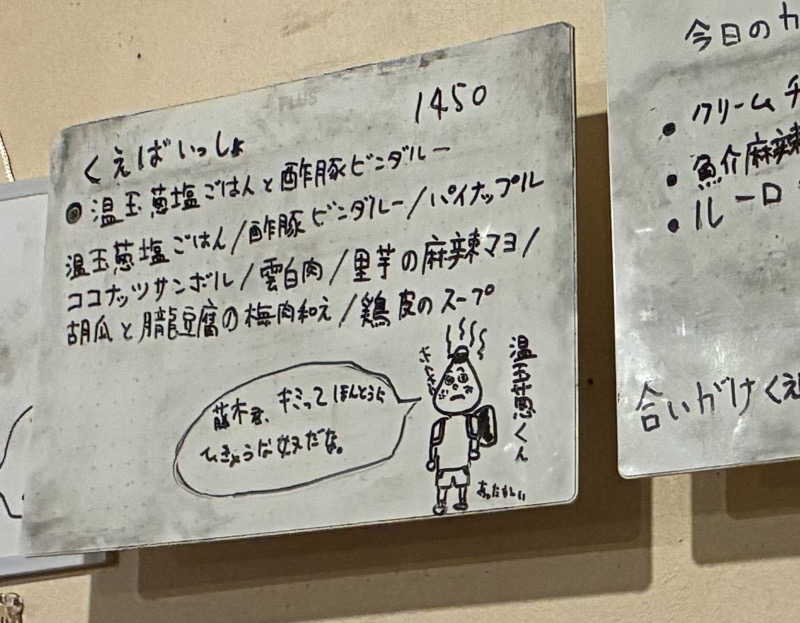 PLUS
1450
くえばいっしょ
◉ 温玉葱塩ごはんと酢豚ビンダルー
温玉葱塩ごはん/酢豚ビンダルー/パイナップル
ココナッツサンボル/雲白肉/里芋の麻辣マヨ/
胡瓜と朧豆腐の梅肉和え/鶏皮のスープ
温玉葱くん
藤木君、キミってほんとうに
ひきょうな奴だな。
あったかい
今日のカ
• クリームチ
• 魚介麻辣
• ルーロ
合いがけくえ